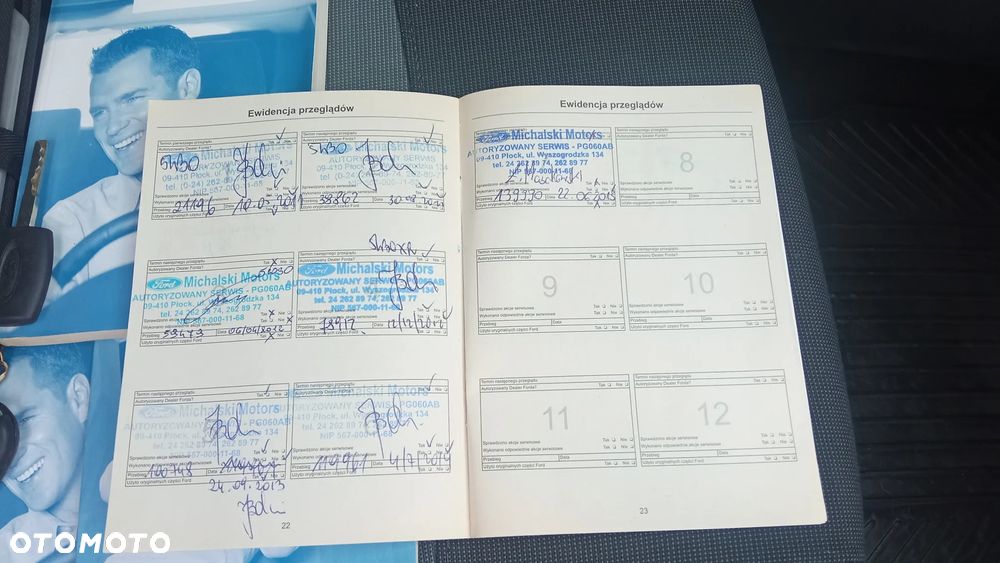 Ewidencja przeglądów
Termin pierwszego przeglądu
Autoryzowany Dealer Forda? Tak Nie
5W30
Michalski Motors
AUTORYZOWANY SERWIS
09-410 Płock, ul. Wyszogrodzka
tel. (0-24) 262
NIP 567-000-11-68
Sprawdzono akcje serwisowe
Wykonano odpowiednie akcje serwisowe
Przebieg 21196 Data 10.05.2011
Użyto oryginalnych części Ford
Termin następnego przeglądu
Autoryzowany Dealer Forda? Tak Nie
5W30
Michalski Motors
AUTORYZOWANY SERWIS
09-410 Płock, ul. Wyszogrodzka
Sprawdzono akcje serwisowe
Wykonano odpowiednie akcje serwisowe
Przebieg 38862 Data 30
Użyto oryginalnych części Ford
Termin następnego przeglądu
Autoryzowany Dealer Forda? Tak Nie
5W30
Ford Michalski Motors
AUTORYZOWANY SERWIS - PG060AB
09-410 Płock, ul. Wyszogrodzka 134
tel. 24 262 89 74, 262 89 77
NIP 567-000-11-68
Wykonano odpowiednie akcje serwisowe
Przebieg Data 06/04/2012
Użyto oryginalnych części Ford
5W30
Ford Michalski Motors
AUTORYZOWANY SERWIS - PG060AB
09-410 Płock, ul. Wyszogrodzka 134
tel. 24 262 89 74, 262 89 77
NIP 567-000-11-68
Wykonano odpowiednie akcje serwisowe
Przebieg Data 12/12/2012
Użyto oryginalnych części Ford
Termin następnego przeglądu
Autoryzowany Dealer Forda? Tak Nie
Michalski Motors
AUTORYZOWANY SERWIS
09-410 Płock, ul. Wyszogrodzka
tel. 24 262 89 74, 262 89 77
NIP 567-000-11-68
Wykonano odpowiednie akcje serwisowe
Przebieg 100748 Data
Użyto oryginalnych części Ford
24.09.2013
Termin następnego przeglądu
Michalski Motors
AUTORYZOWANY SERWIS - PG060AB
09-410 Płock, ul. Wyszogrodzka 134
tel. 24 262 89 74, 262 89 77
NIP 567-000-11-68
Sprawdzono akcje serwisowe
Wykonano odpowiednie akcje serwisowe
Przebieg Data
Użyto oryginalnych części Ford
22
Ewidencja przeglądów
Michalski Motors
AUTORYZOWANY SERWIS - PG060AB
09-410 Płock, ul. Wyszogrodzka 134
tel. 24 262 89 74, 262 89 77
NIP 567-000-11-68
Sprawdzono akcje serwisowe
Wykonano odpowiednie akcje serwisowe
Przebieg 139990 Data 22.06.2015
Użyto oryginalnych części Ford
Termin następnego przeglądu
Autoryzowany Dealer Forda? Tak Nie
8
Sprawdzono akcje serwisowe Tak Nie
Wykonano odpowiednie akcje serwisowe
Przebieg Data
Użyto oryginalnych części Ford
Termin następnego przeglądu
Autoryzowany Dealer Forda? Tak Nie
9
Sprawdzono akcje serwisowe Tak Nie
Wykonano odpowiednie akcje serwisowe
Przebieg Data
Użyto oryginalnych części Ford
Termin następnego przeglądu
Autoryzowany Dealer Forda? Tak Nie
10
Sprawdzono akcje serwisowe Tak Nie
Wykonano odpowiednie akcje serwisowe
Przebieg Data
Użyto oryginalnych części Ford
Termin następnego przeglądu
Autoryzowany Dealer Forda? Tak Nie
11
Sprawdzono akcje serwisowe Tak Nie
Wykonano odpowiednie akcje serwisowe
Przebieg Data
Użyto oryginalnych części Ford
Termin następnego przeglądu
Autoryzowany Dealer Forda? Tak Nie
12
Sprawdzono akcje serwisowe Tak Nie
Wykonano odpowiednie akcje serwisowe
Przebieg Data
Użyto oryginalnych części Ford
23
OTOMOTO